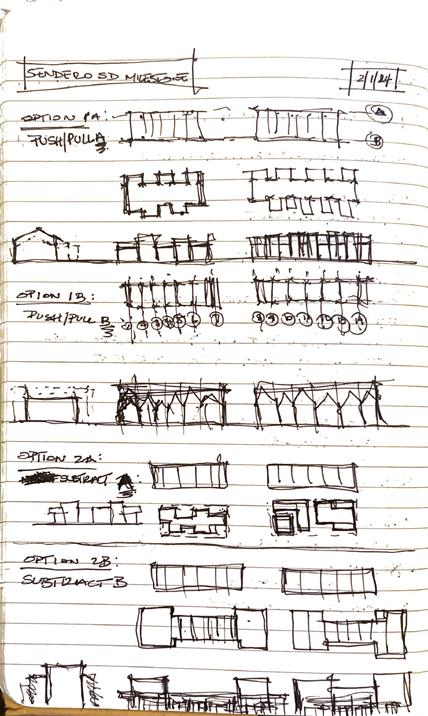 SENDERO SD MILESTONE
2/1/24
OPTION 1A:
A
PUSH/PULL A
B
OPION 1B:
PUSH/PULL B
OPTION 2A:
SUBTRACT A
OPTION 2B:
SUBTRACT B